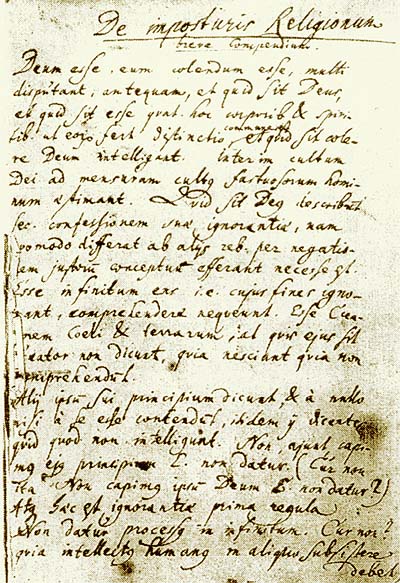 De imposturis Religionum
breve Compendium.
Deum esse, eum colendum esse, multi
disputant, antequam, et quid sit Deus,
et quid sit esse, quat. hoc corporib & spiri-
tib. ut eorum fert distinctio commune est,
et quid sit cole-
re Deum intelligant. Interim cultum
Dei ad mensuram cultq fastuosorum homi-
num æstimant. Quid sit Deq describunt
sec. confessionem suæ ignorantiæ, nam
quomodo differat ab alijs reb. per negatio-
nem conceptuum efferant necesse est.
Esse infinitum ens i.e. cujus fines igno-
rant, comprehendere nequeunt. Esse Crea-
torem Coeli & terrarum, at quis ejus sit
Creator non dicunt, quia nesciunt quia non
comprehendūt.
Alij ipsū sui principium dicunt, & à nullo
nisi à se esse contendūt, itidem
quid quod non intelligunt. Non, ajunt, capi-
mq ejq principium E. non datur. (Cur non
ita Non capimq ipsū Deum E. non datur?)
Atq hæc est ignorantiæ prima regula
Non datur processq in infinitum. Cur non?
quia intellectq humanq in aliquo subsistere
debet